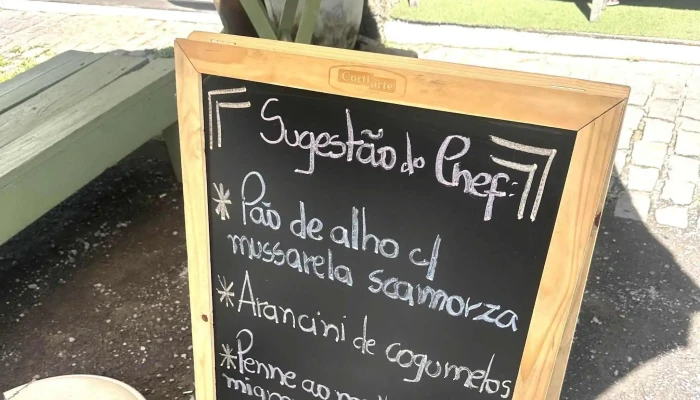 Cortiarte
Sugestão do Chef:
* Pão de alho c/
mussarela scamorza
* Arancini de cogumelos
* Penne ao